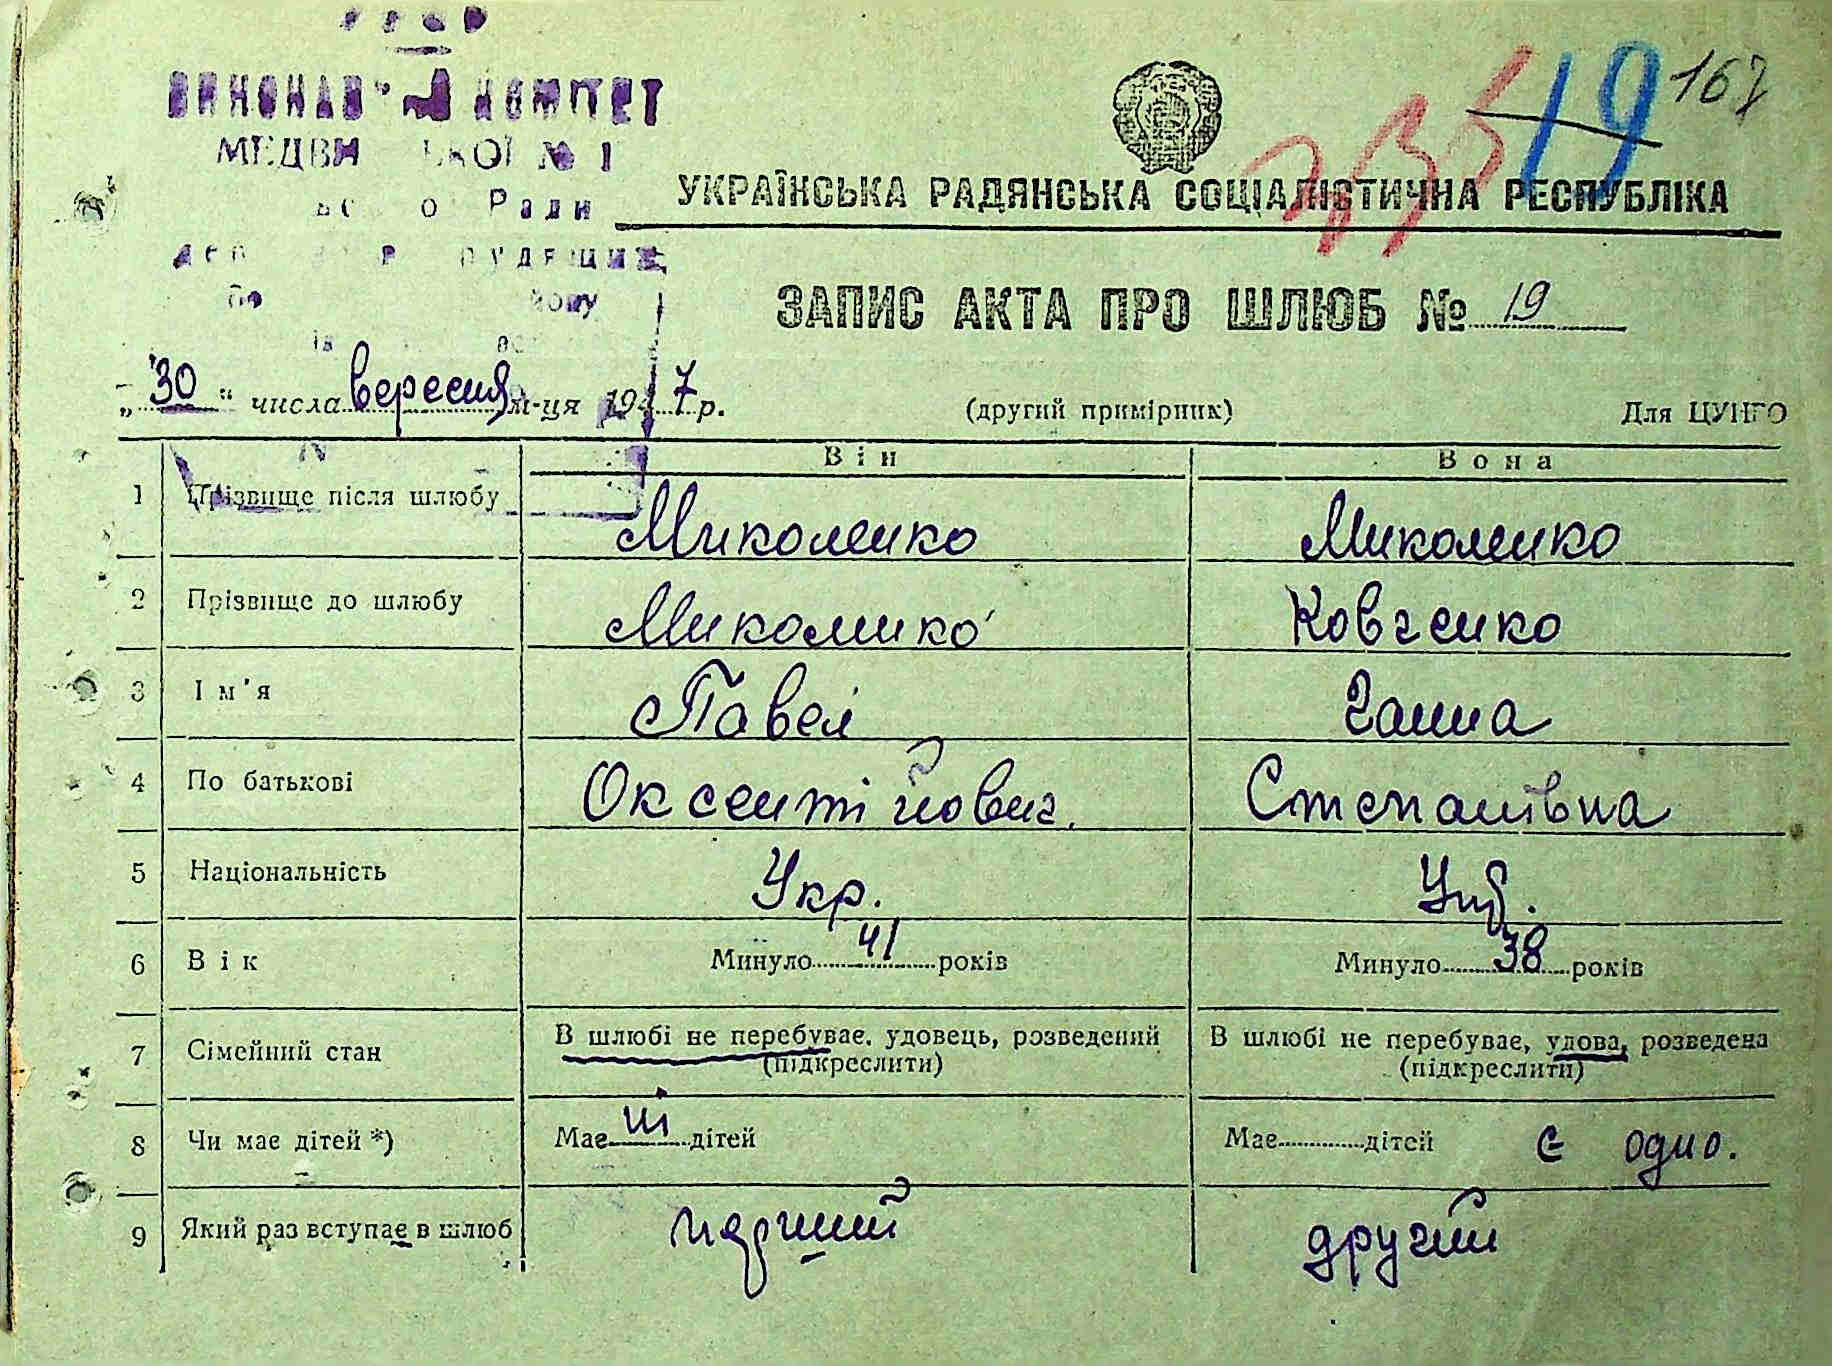 УРСР
ВИКОНАВ КОМІТЕТ
МЕДВИ ЬКОЇ № 1
Ради
167
19
УКРАЇНСЬКА РАДЯНСЬКА СОЦІАЛІСТИЧНА РЕСПУБЛІКА
ЗАПИС АКТА ПРО ШЛЮБ № 19
„30“ числа вересня м-ця 1947 р. (другий примірник) Для ЦУНГО
Він Вона
1 Прізвище після шлюбу Миколенко Миколенко
2 Прізвище до шлюбу Миколенко Ковченко
3 Ім'я Павел Ганна
4 По батькові Оксентійович. Степанівна
5 Національність Укр. Укр.
6 Вік Минуло 41 років Минуло 38 років
7 Сімейний стан В шлюбі не перебуває, удовець, розведений В шлюбі не перебуває, удова, розведена
(підкреслити) (підкреслити)
8 Чи має дітей *) Має ні дітей Має дітей є одно.
9 Який раз вступає в шлюб перший другий